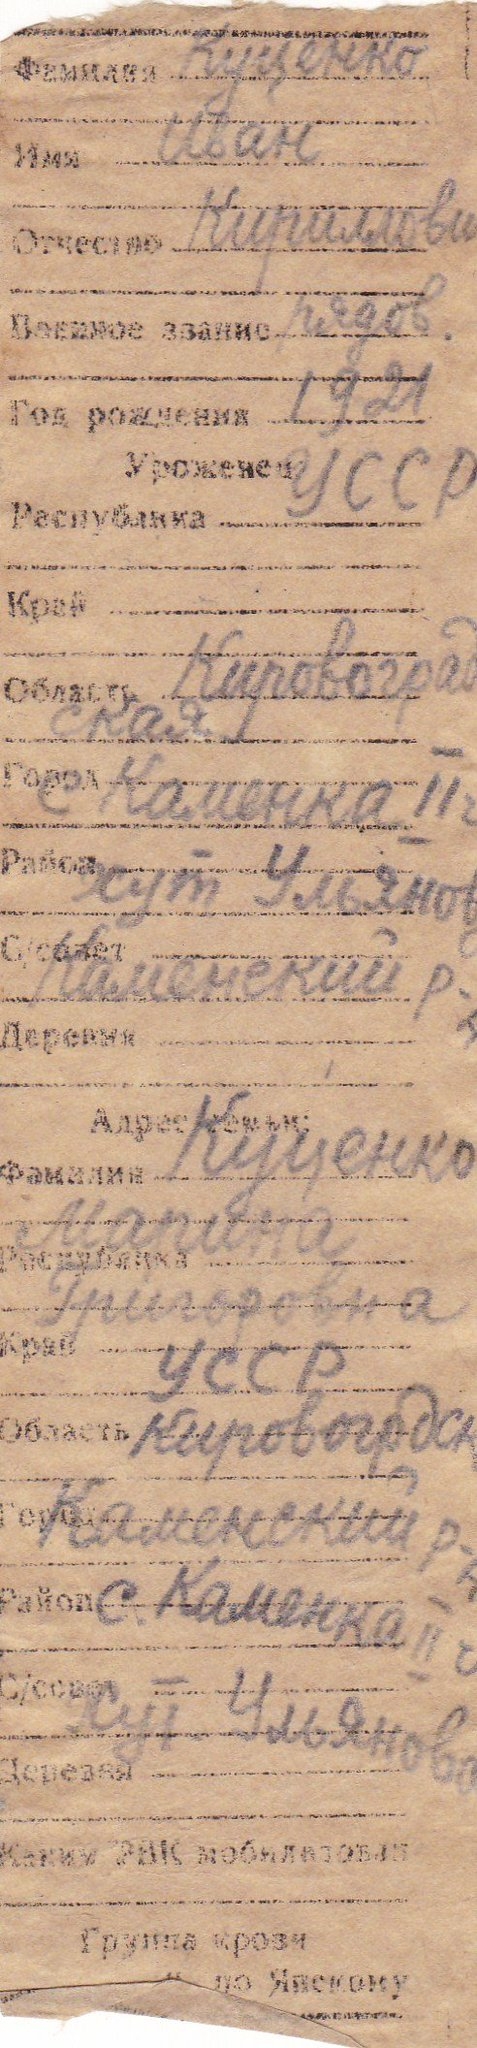 Фамилия Куценко
Имя Иван
Отчество Кириллови
Военное звание рядов.
Год рождения 1921
Уроженец
Республика УССР
Край
Область Кировоград
ская
Город с Каменка II ч
Район хут Ульянов
С/совет Каменский р-
Деревня
Адрес семьи:
Фамилия Куценко
Марина
Республика
Григоровна
Край
УССР
Область Кировогрдск
Город Каменский р-
Район с. Каменка II ч
С/совет Хут Ульяново
Деревня
Каким РВК мобилизован
Группа крови
" по Янскому